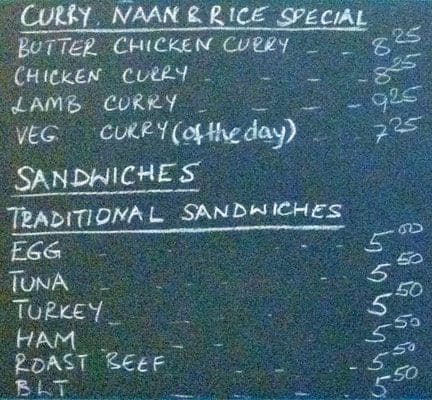 CURRY, NAAN & RICE SPECIAL
BUTTER CHICKEN CURRY - - - 8.25
CHICKEN CURRY - - - - 8.25
LAMB CURRY - - - - 9.25
VEG CURRY (of the day) - - 7.25
SANDWICHES
TRADITIONAL SANDWICHES
EGG - - - - 5.00
TUNA - - - - 5.50
TURKEY - - - - 5.50
HAM - - - - 5.50
ROAST BEEF - - - 5.50
BLT - - - - 5.50